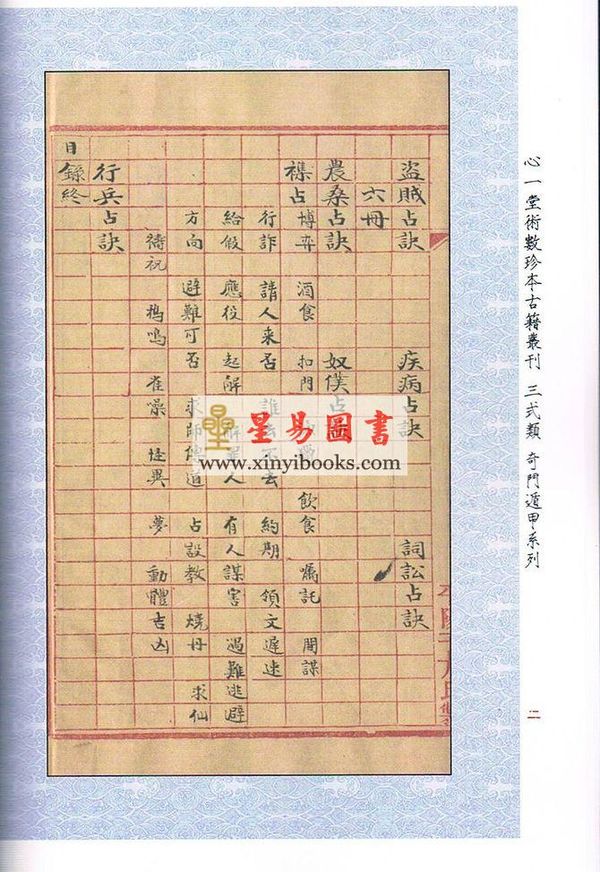 心一堂術數珍本古籍叢刊 三式類 奇門遁甲系列
二
盜賊占訣 疾病占訣 詞訟占訣
六冊
農桑占訣 奴僕占
襍占 博弈 酒食 扣門 飲食 囑託 間諜
行詐 請人來否 誰去不去 約期 領文遲速
給假 應役 起解 解軍人 有人謀害 遇難逃避
方向 避難可否 求師傳道 占設教 燒丹 求仙
禱祝 鴉鳴 雀噪 怪異 夢 動體吉凶
行兵占訣
目錄終
星易圖書
www.xinyibooks.com